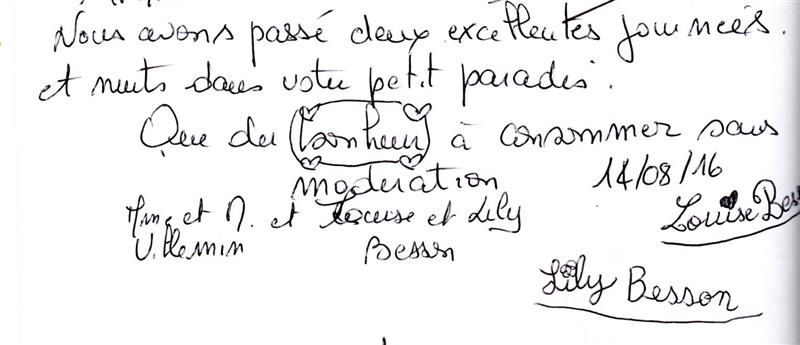 Nous avons passé deux excellentes journées.
et nuits dans votre petit paradis.
Que du bonheur à consommer sans
modération
14/08/16
Mme et M. et Louise et Lily
Villemin Besson
Louise Bess
Lily Besson